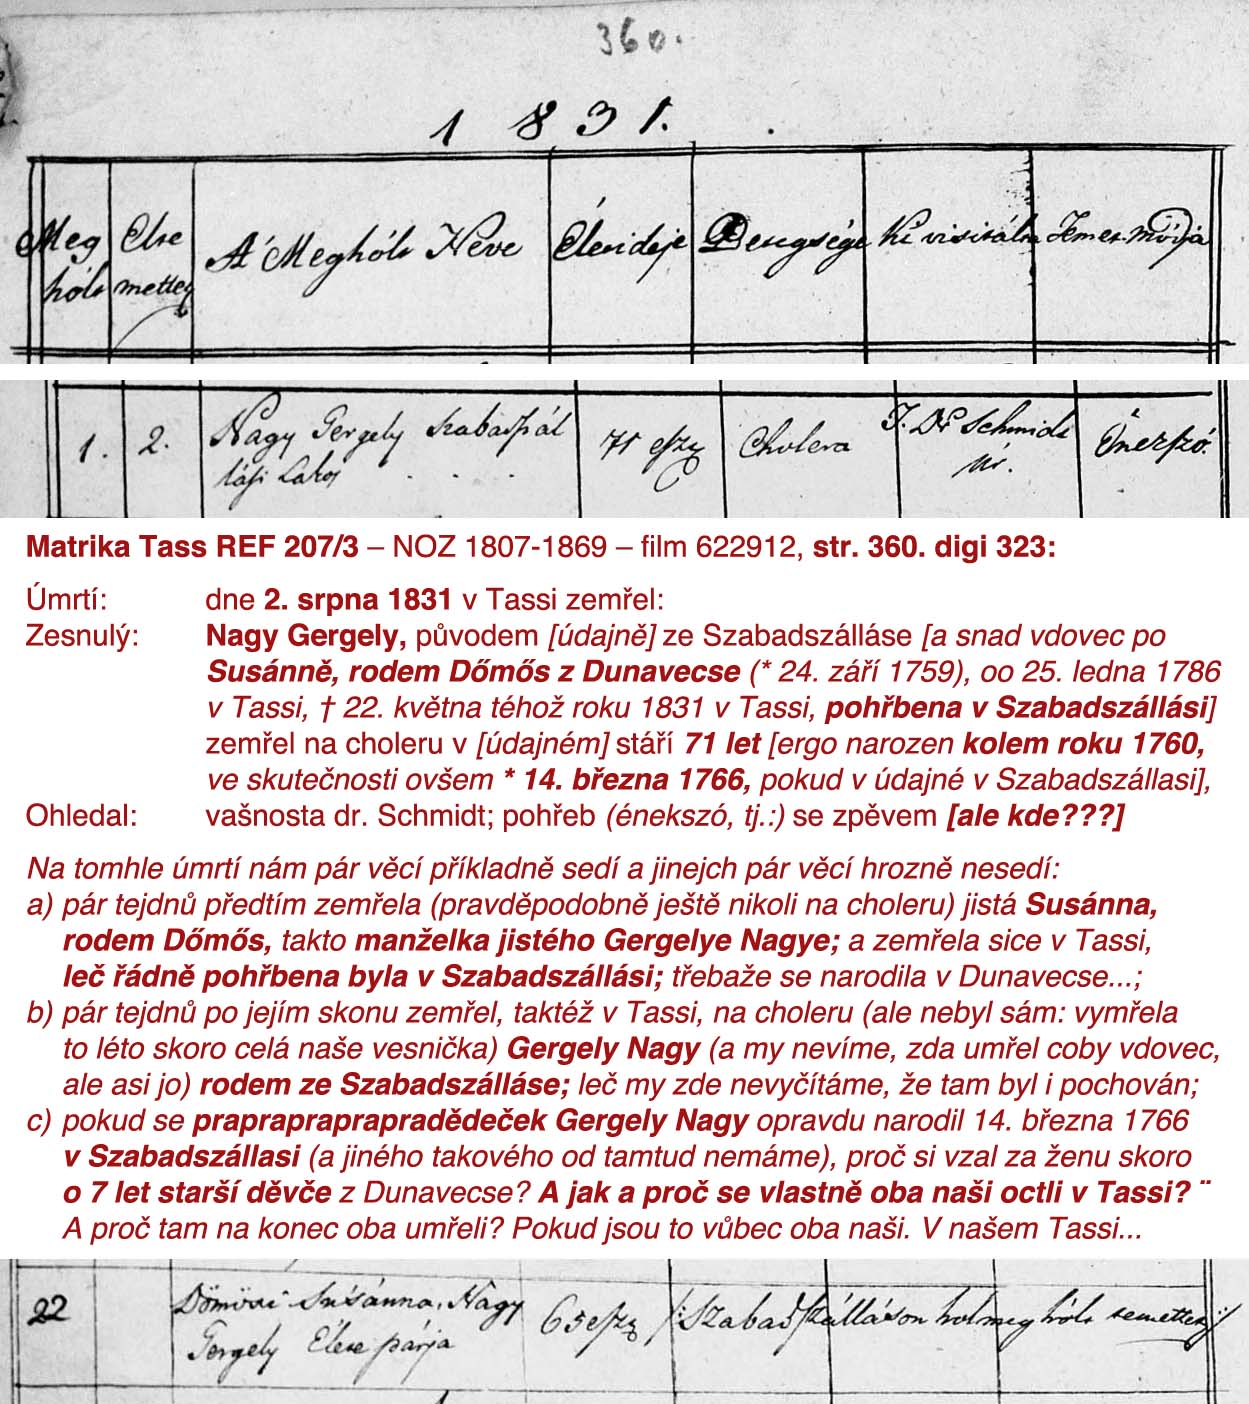 360.
1831.
Meg
hólt
Elte
mettet
A' Meghólt Neve
Élet ideje
Betegsége
Ki visitálta
Temet. módja
1.
2.
Nagy Gergely Szabadszál
lási Lakos
71 eszt
Cholera
Dr Schmidt
Úr.
Énekszó.
Matrika Tass REF 207/3 – NOZ 1807-1869 – film 622912, str. 360. digi 323:
Úmrtí: dne 2. srpna 1831 v Tassi zemřel:
Zesnulý: Nagy Gergely, původem [údajně] ze Szabadszálláse [a snad vdovec po
Susánně, rodem Dőmős z Dunavecse (* 24. září 1759), oo 25. ledna 1786
v Tassi, † 22. května téhož roku 1831 v Tassi, pohřbena v Szabadszállási]
zemřel na choleru v [údajném] stáří 71 let [ergo narozen kolem roku 1760,
ve skutečnosti ovšem * 14. března 1766, pokud v údajné v Szabadszállasi],
Ohledal: vašnosta dr. Schmidt; pohřeb (énekszó, tj.:) se zpěvem [ale kde???]
Na tomhle úmrtí nám pár věcí příkladně sedí a jinejch pár věcí hrozně nesedí:
a) pár tejdnů předtím zemřela (pravděpodobně ještě nikoli na choleru) jistá Susánna,
rodem Dőmős, takto manželka jistého Gergelye Nagye; a zemřela sice v Tassi,
leč řádně pohřbena byla v Szabadszállási; třebaže se narodila v Dunavecse...;
b) pár tejdnů po jejím skonu zemřel, taktéž v Tassi, na choleru (ale nebyl sám: vymřela
to léto skoro celá naše vesnička) Gergely Nagy (a my nevíme, zda umřel coby vdovec,
ale asi jo) rodem ze Szabadszálláse; leč my zde nevyčítáme, že tam byl i pochován;
c) pokud se praprapraprapradědeček Gergely Nagy opravdu narodil 14. března 1766
v Szabadszállasi (a jiného takového od tamtud nemáme), proč si vzal za ženu skoro
o 7 let starší děvče z Dunavecse? A jak a proč se vlastně oba naši octli v Tassi? ¨
A proč tam na konec oba umřeli? Pokud jsou to vůbec oba naši. V našem Tassi...
22
Dömösi Susánna, Nagy
Gergely Élete párja
65 eszt
/: Szabadszálláson holt meg hólt temettet :/